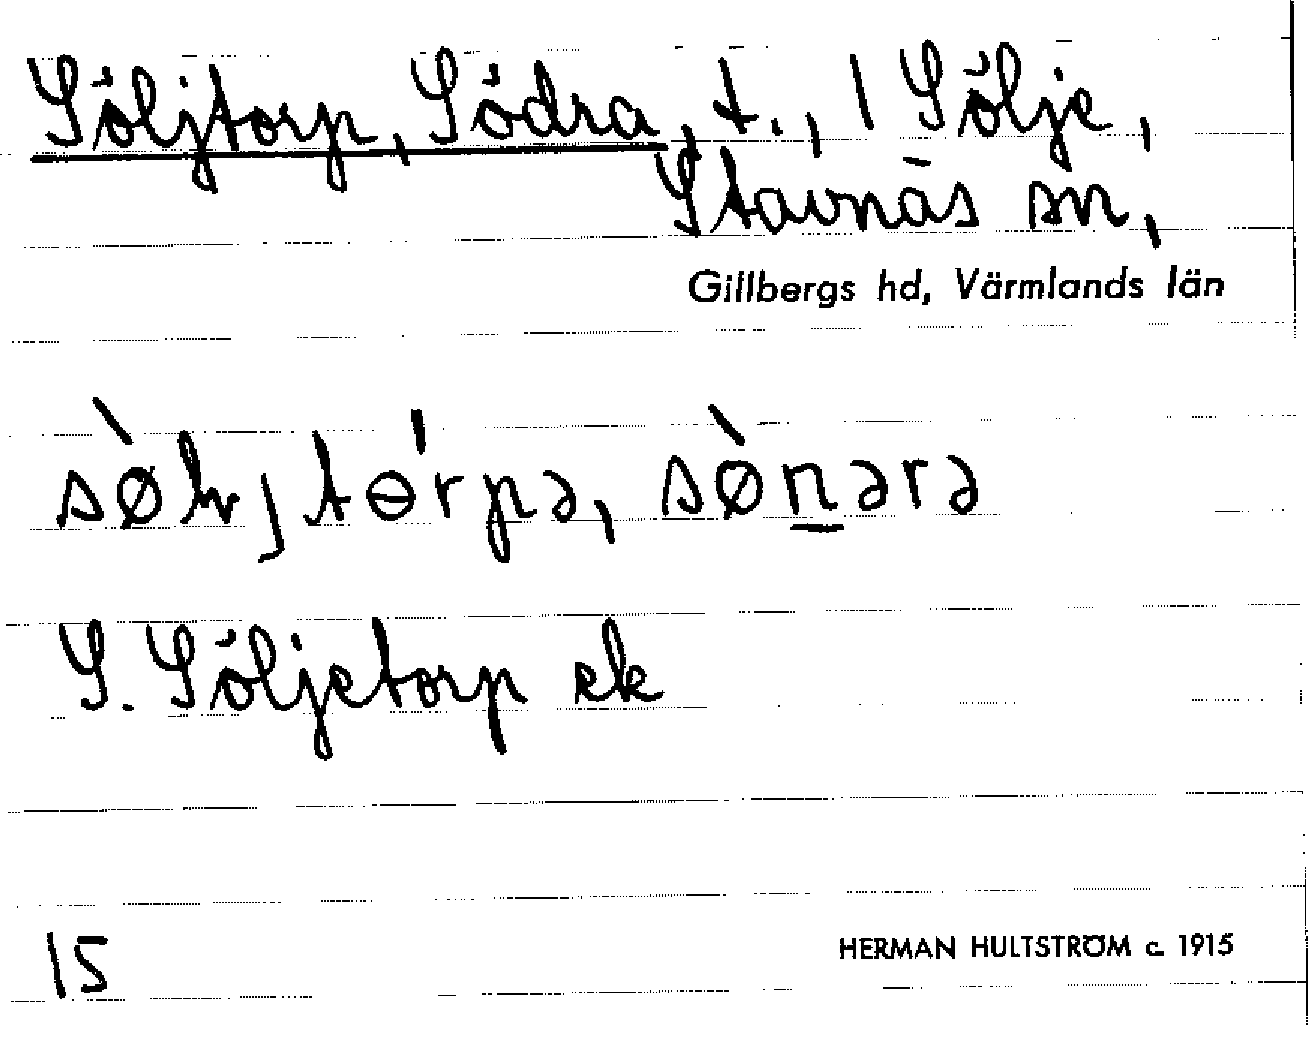 Söljtorp, Södra, t., i Sölje,
Stavnäs sn,
Gillbergs hd, Värmlands län
sø̀lɩȷtɵ́rpə, sø̀n̲ərə
S. Söljetorp ek
15
HERMAN HULTSTRÖM c. 1915